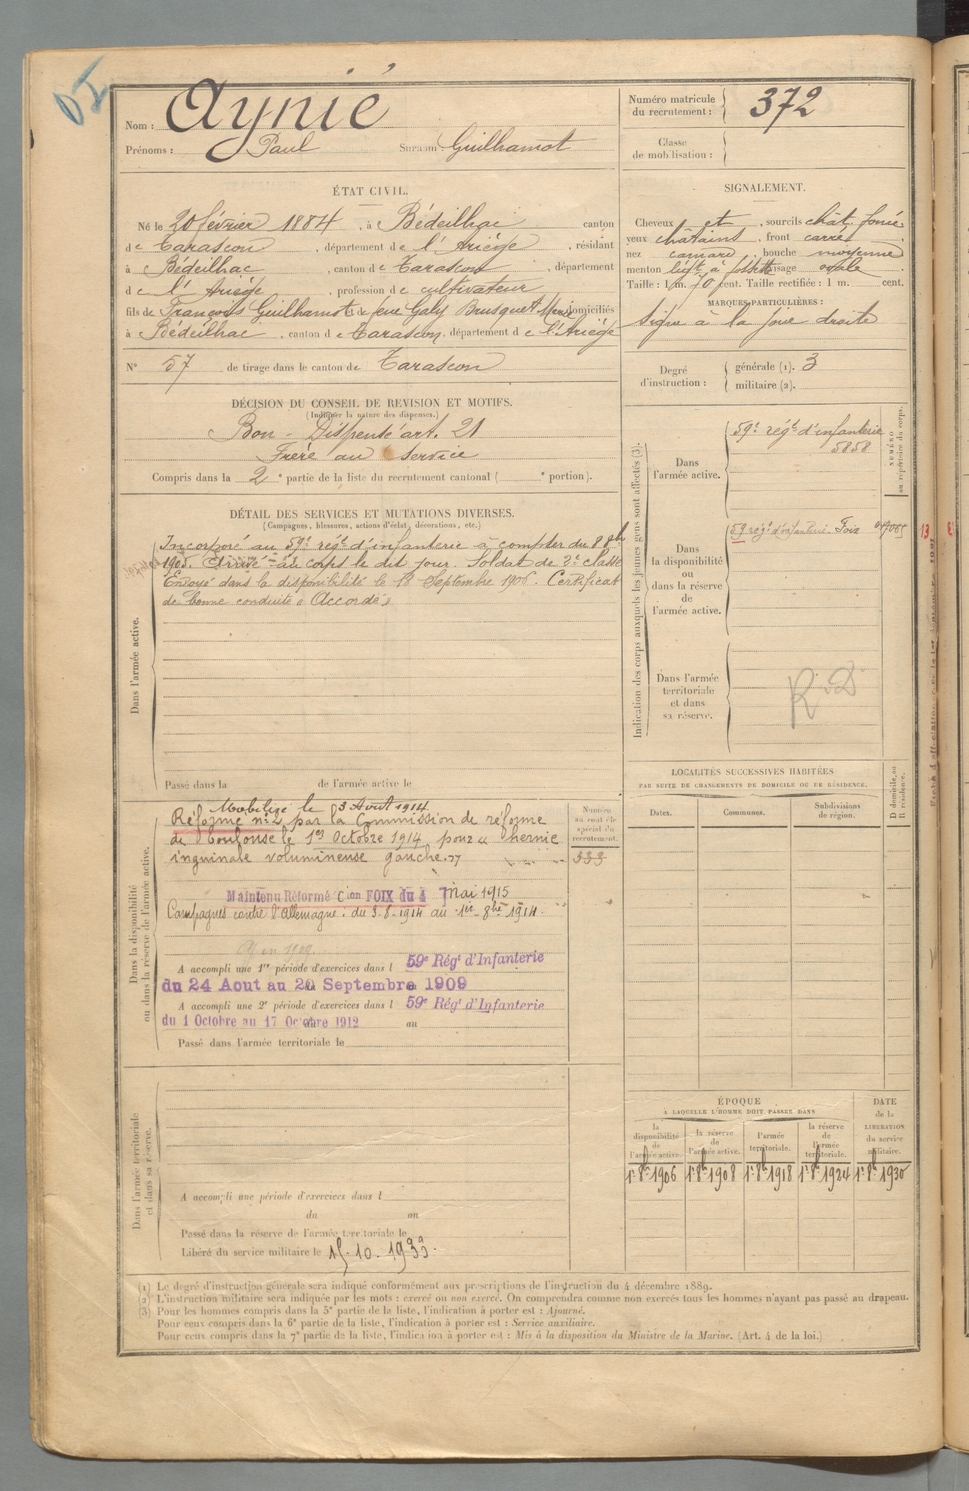 Nom : Aynié
Prénoms : Paul Surnom Guilhamot
Numéro matricule du recrutement : 372
Classe de mobilisation :
ÉTAT CIVIL.
Né le 20 février 1884, à Bédeilhac canton
de Tarascon, département de l'Ariège, résidant
à Bédeilhac, canton de Tarascon, département
de l'Ariège, profession de cultivateur
fils de François Guilhamot et de feue Galy Brusquet Marie domiciliés
à Bédeilhac, canton de Tarascon, département de l'Ariège
N° 57 de tirage dans le canton de Tarascon
SIGNALEMENT.
Cheveux et, sourcils chât. foncé
yeux châtains, front carré,
nez camard, bouche moyenne
menton légt à fossette visage ovale.
Taille : 1 m. 70 cent. Taille rectifiée : 1 m. cent.
MARQUES PARTICULIÈRES :
Signe à la joue droite
Degré d'instruction : générale (1). 3
militaire (2).
DÉCISION DU CONSEIL DE REVISION ET MOTIFS.
(Indiquer la nature des dispenses.)
Bon - Dispensé art. 21
Frère au service
Compris dans la 2e partie de la liste du recrutement cantonal ( e portion).
DÉTAIL DES SERVICES ET MUTATIONS DIVERSES.
(Campagnes, blessures, actions d'éclat, décorations, etc.)
Dans l'armée active.
Incorporé au 59e régt d'infanterie à compter du 8 8bre
1905. Arrivé au corps le dit jour. Soldat de 2e classe
Envoyé dans la disponibilité le 18 Septembre 1906. Certificat
de bonne conduite "Accordé"
Passé dans la de l'armée active le
Indication des corps auxquels les jeunes gens sont affectés (3).
NUMÉRO au répertoire du corps.
Dans l'armée active.
59e régt d'infanterie
5858
Dans la disponibilité ou dans la réserve de l'armée active.
59 régt d'infanterie Foix
Dans l'armée territoriale et dans sa réserve.
R.D
LOCALITÉS SUCCESSIVES HABITÉES
PAR SUITE DE CHANGEMENTS DE DOMICILE OU DE RÉSIDENCE.
Dates. Communes. Subdivisions de région. D domicile, ou R résidence.
Dans la disponibilité ou dans la réserve de l'armée active.
Mobilisé le 3 Août 1914.
Réformé n° 2 par la Commission de réforme
de Toulouse le 1er Octobre 1914 pour "hernie
inguinale volumineuse gauche."
Numéro au contrôle spécial du recrutement.
333
Maintenu Réformé Cion FOIX du 4 Mai 1915
Campagnes contre l'Allemagne : du 3-8-1914 au 1er-8bre 1914.
A accompli une 1re période d'exercices dans l 59e Régt d'Infanterie
du 24 Aout au 20 Septembre 1909
A accompli une 2e période d'exercices dans l 59e Régt d'Infanterie
du 1 Octobre au 17 Octobre 1912 au
Passé dans l'armée territoriale le
Dans l'armée territoriale et dans sa réserve.
A accompli une période d'exercices dans l
du au
Passé dans la réserve de l'armée territoriale le
Libéré du service militaire le 15-10-1933.
ÉPOQUE
À LAQUELLE L'HOMME DOIT PASSER DANS
DATE de la LIBÉRATION du service militaire.
la disponibilité de l'armée active. la réserve de l'armée active. l'armée territoriale. la réserve de l'armée territoriale.
1er 8bre 1906 1er 8bre 1908 1er 8bre 1918 1er 8bre 1924 1er 8bre 1930
(1) Le degré d'instruction générale sera indiqué conformément aux prescriptions de l'instruction du 4 décembre 1889.
(2) L'instruction militaire sera indiquée par les mots : exercé ou non exercé. On comprendra comme non exercés tous les hommes n'ayant pas passé au drapeau.
(3) Pour les hommes compris dans la 5e partie de la liste, l'indication à porter est : Ajourné.
Pour ceux compris dans la 6e partie de la liste, l'indication à porter est : Service auxiliaire.
Pour ceux compris dans la 7e partie de la liste, l'indication à porter est : Mis à la disposition du Ministre de la Marine. (Art. 4 de la loi.)